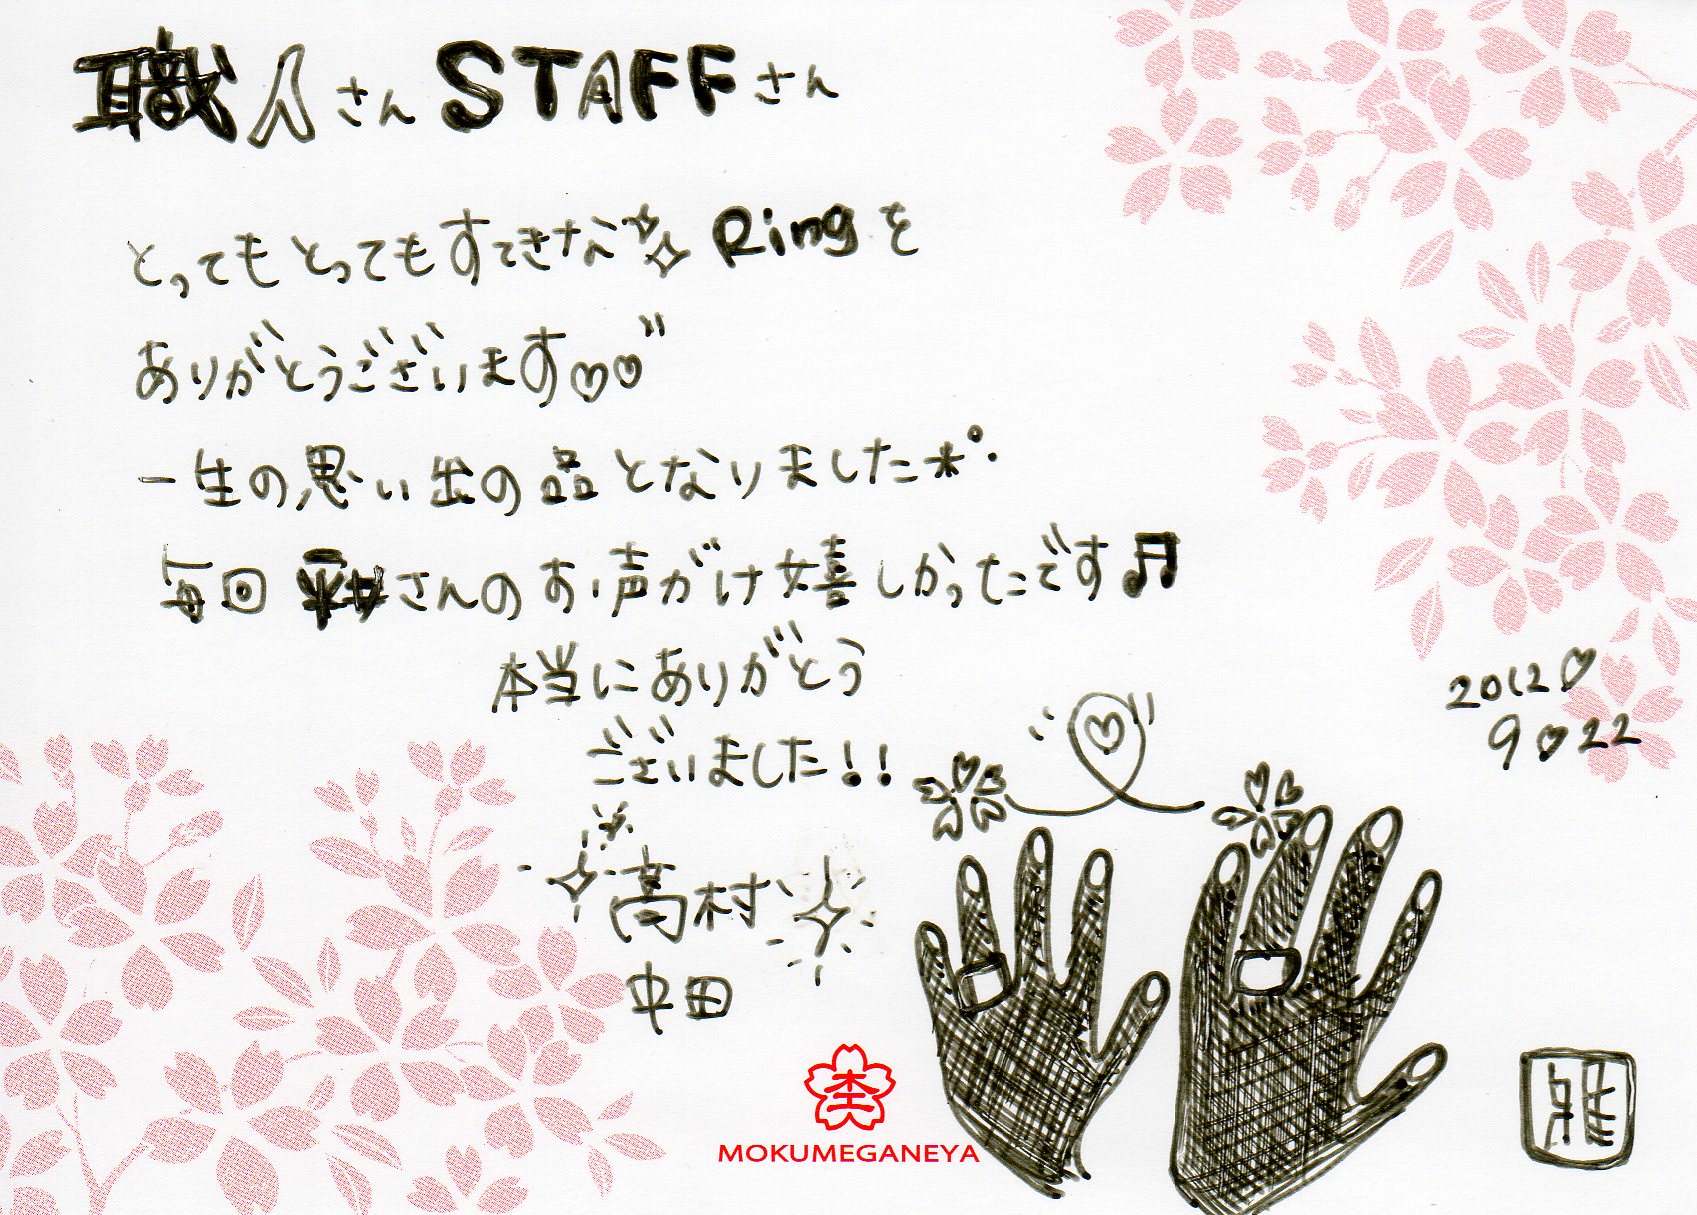 職人さん STAFFさん
とってもとってもすてきな Ringを
ありがとうございます♡♡
一生の思い出の品となりました*°・
毎回 さんのお声がけ嬉しかったです♬
本当にありがとう
ございました!!
2012♡
9♡22
高村
中田
杢
MOKUMEGANEYA
雅